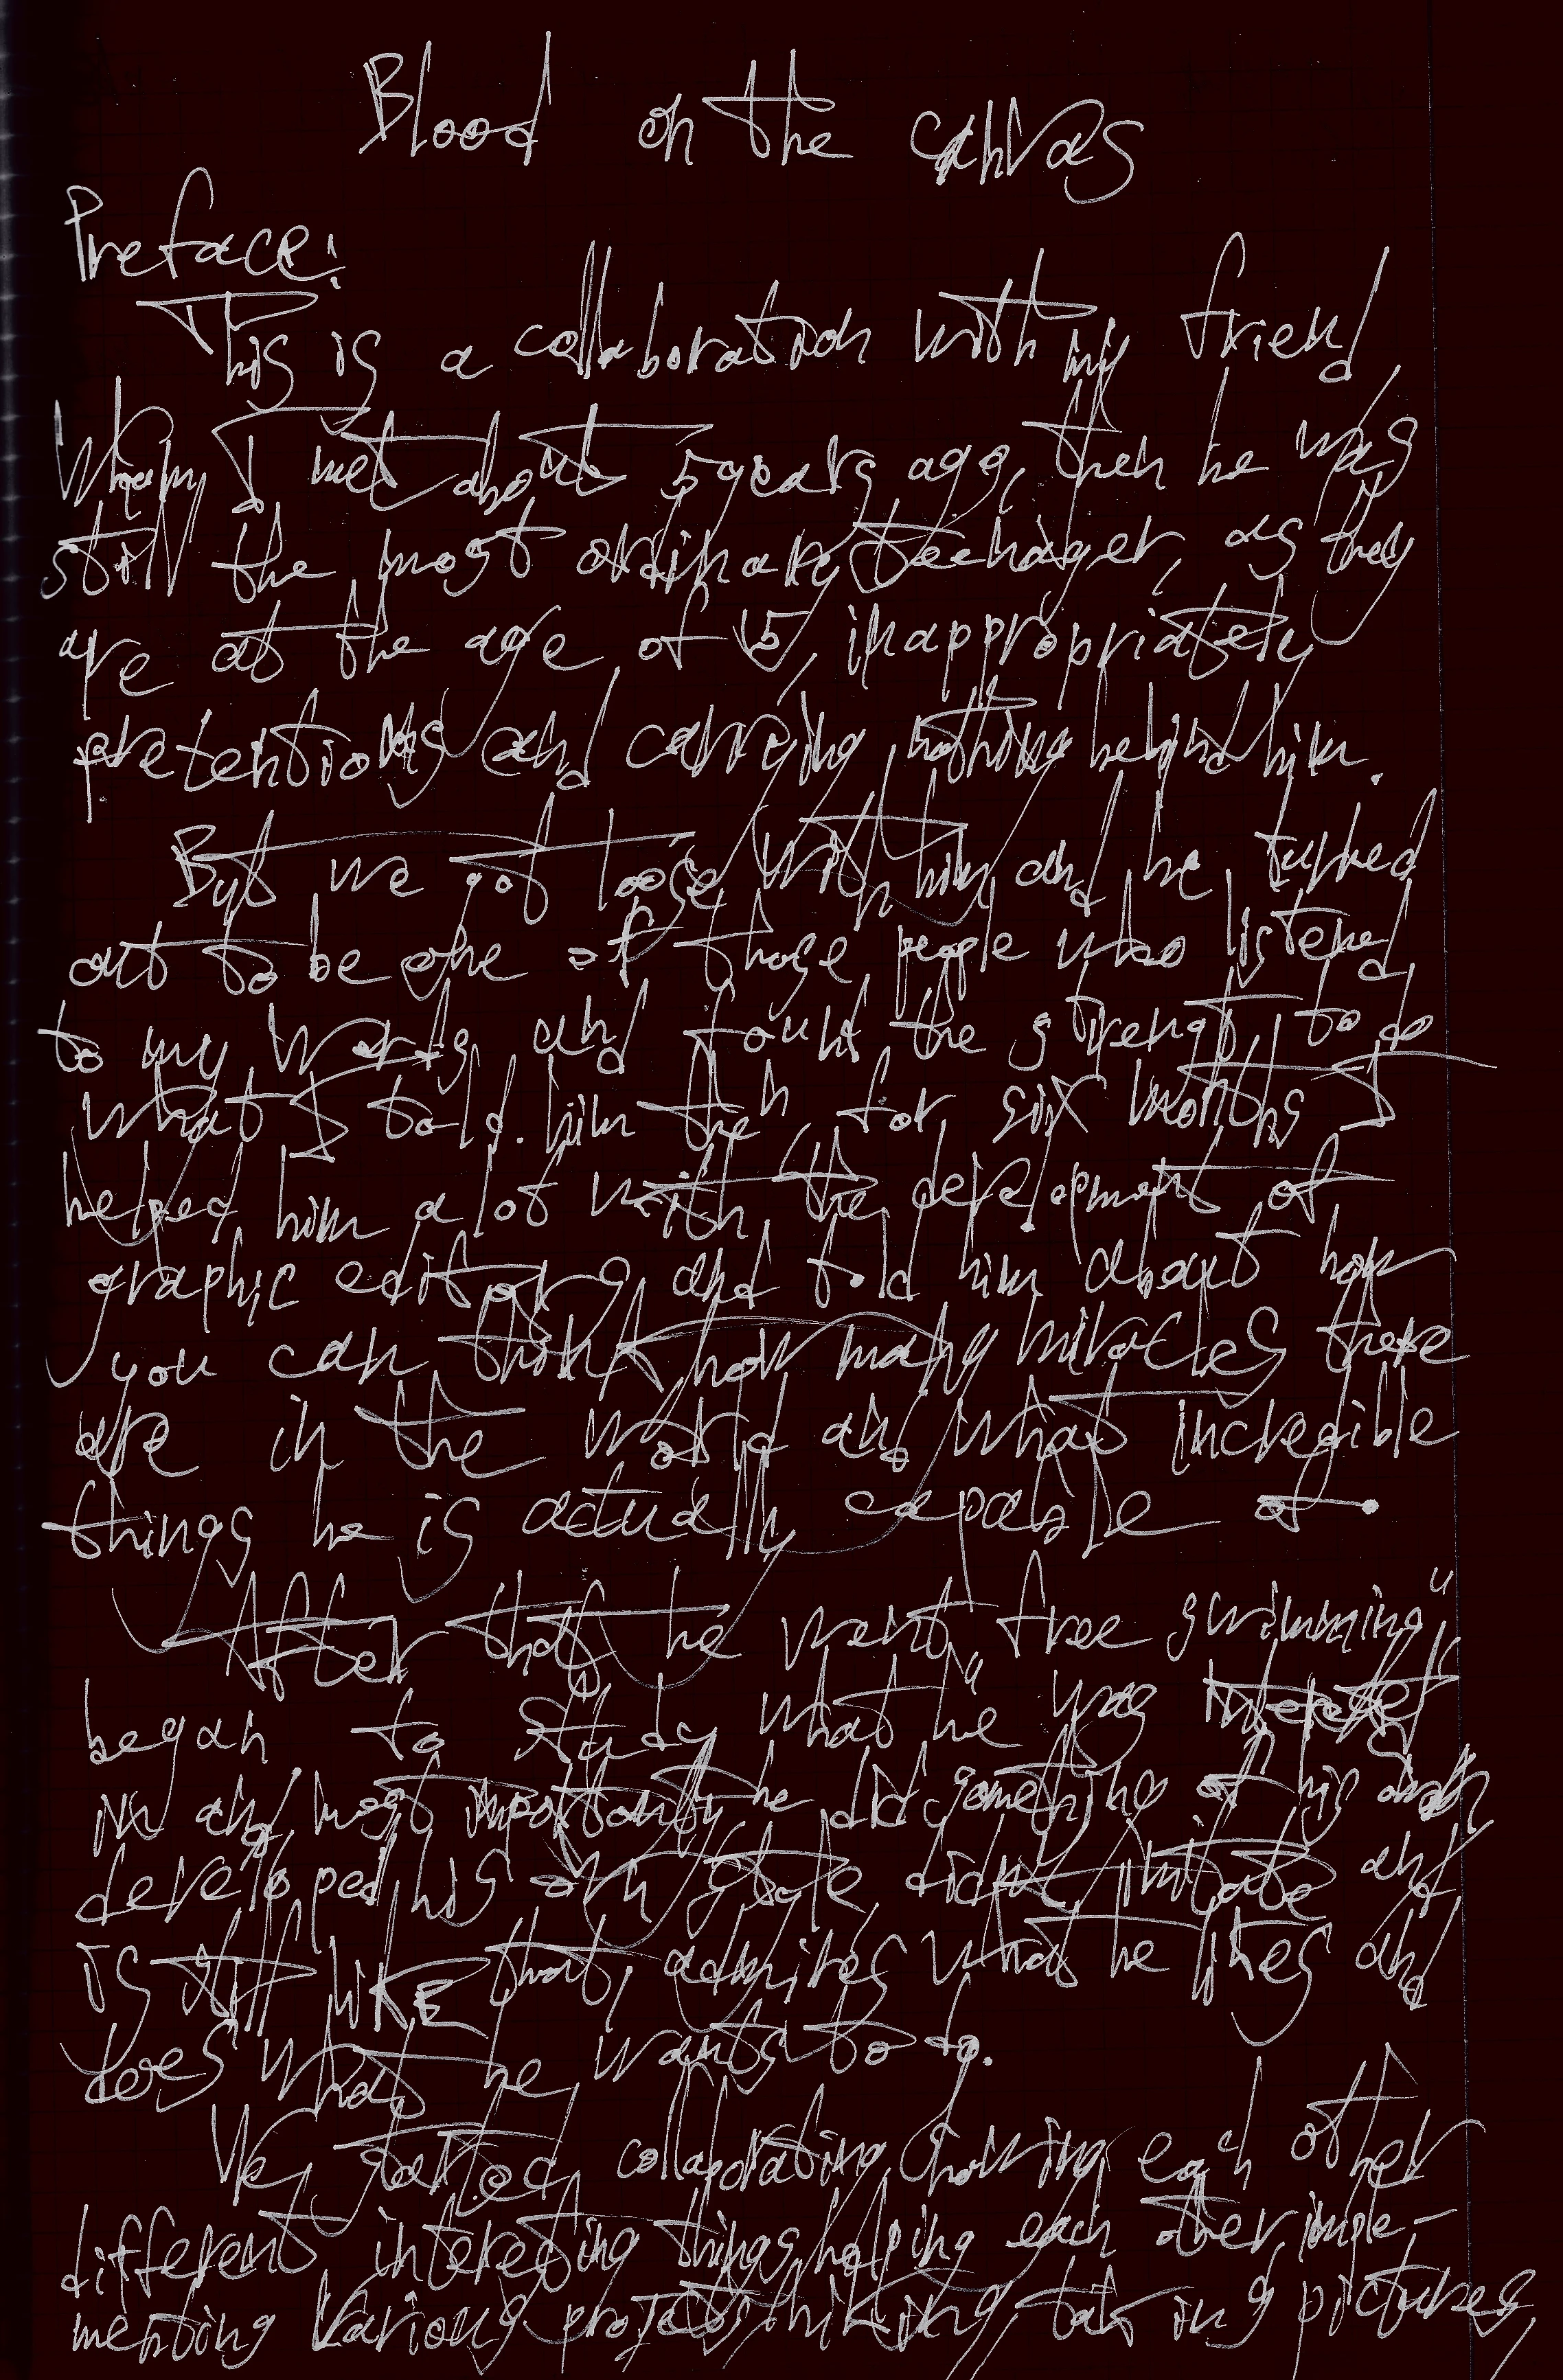 Blood on the canvas
Preface:
This is a collaboration with my friend,
whom I met about 5 years ago, then he was
still the most ordinary teenager, as they
are at the age of 15, inappropriately
pretentious and carrying nothing behind him.
But we got loose with him and he turned
out to be one of those people who listened
to my words and found the strength to do
what I told him then, for six months I
helped him a lot with the development of
graphic editors and told him about how
you can think, how many miracles there
are in the world and what incredible
things he is actually capable of.
After that he went "free swimming",
began to study what he was interested
in and most importantly he did something of his own,
developed his own style didn't imitate and
is still LIKE that, admires what he likes and
does what he wants to do.
We started collaborating, showing each other
different interesting things, helping each other, imple-
menting various projects, thinking, taking pictures,